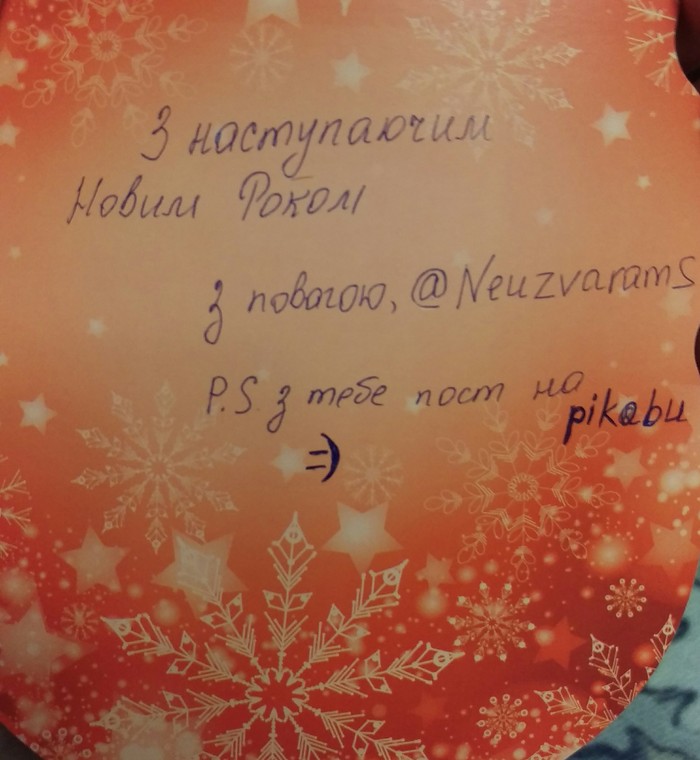 З наступаючим
Новим Роком
з повагою, @Neuzvarams
P.S. з тебе пост на
pikabu
=)